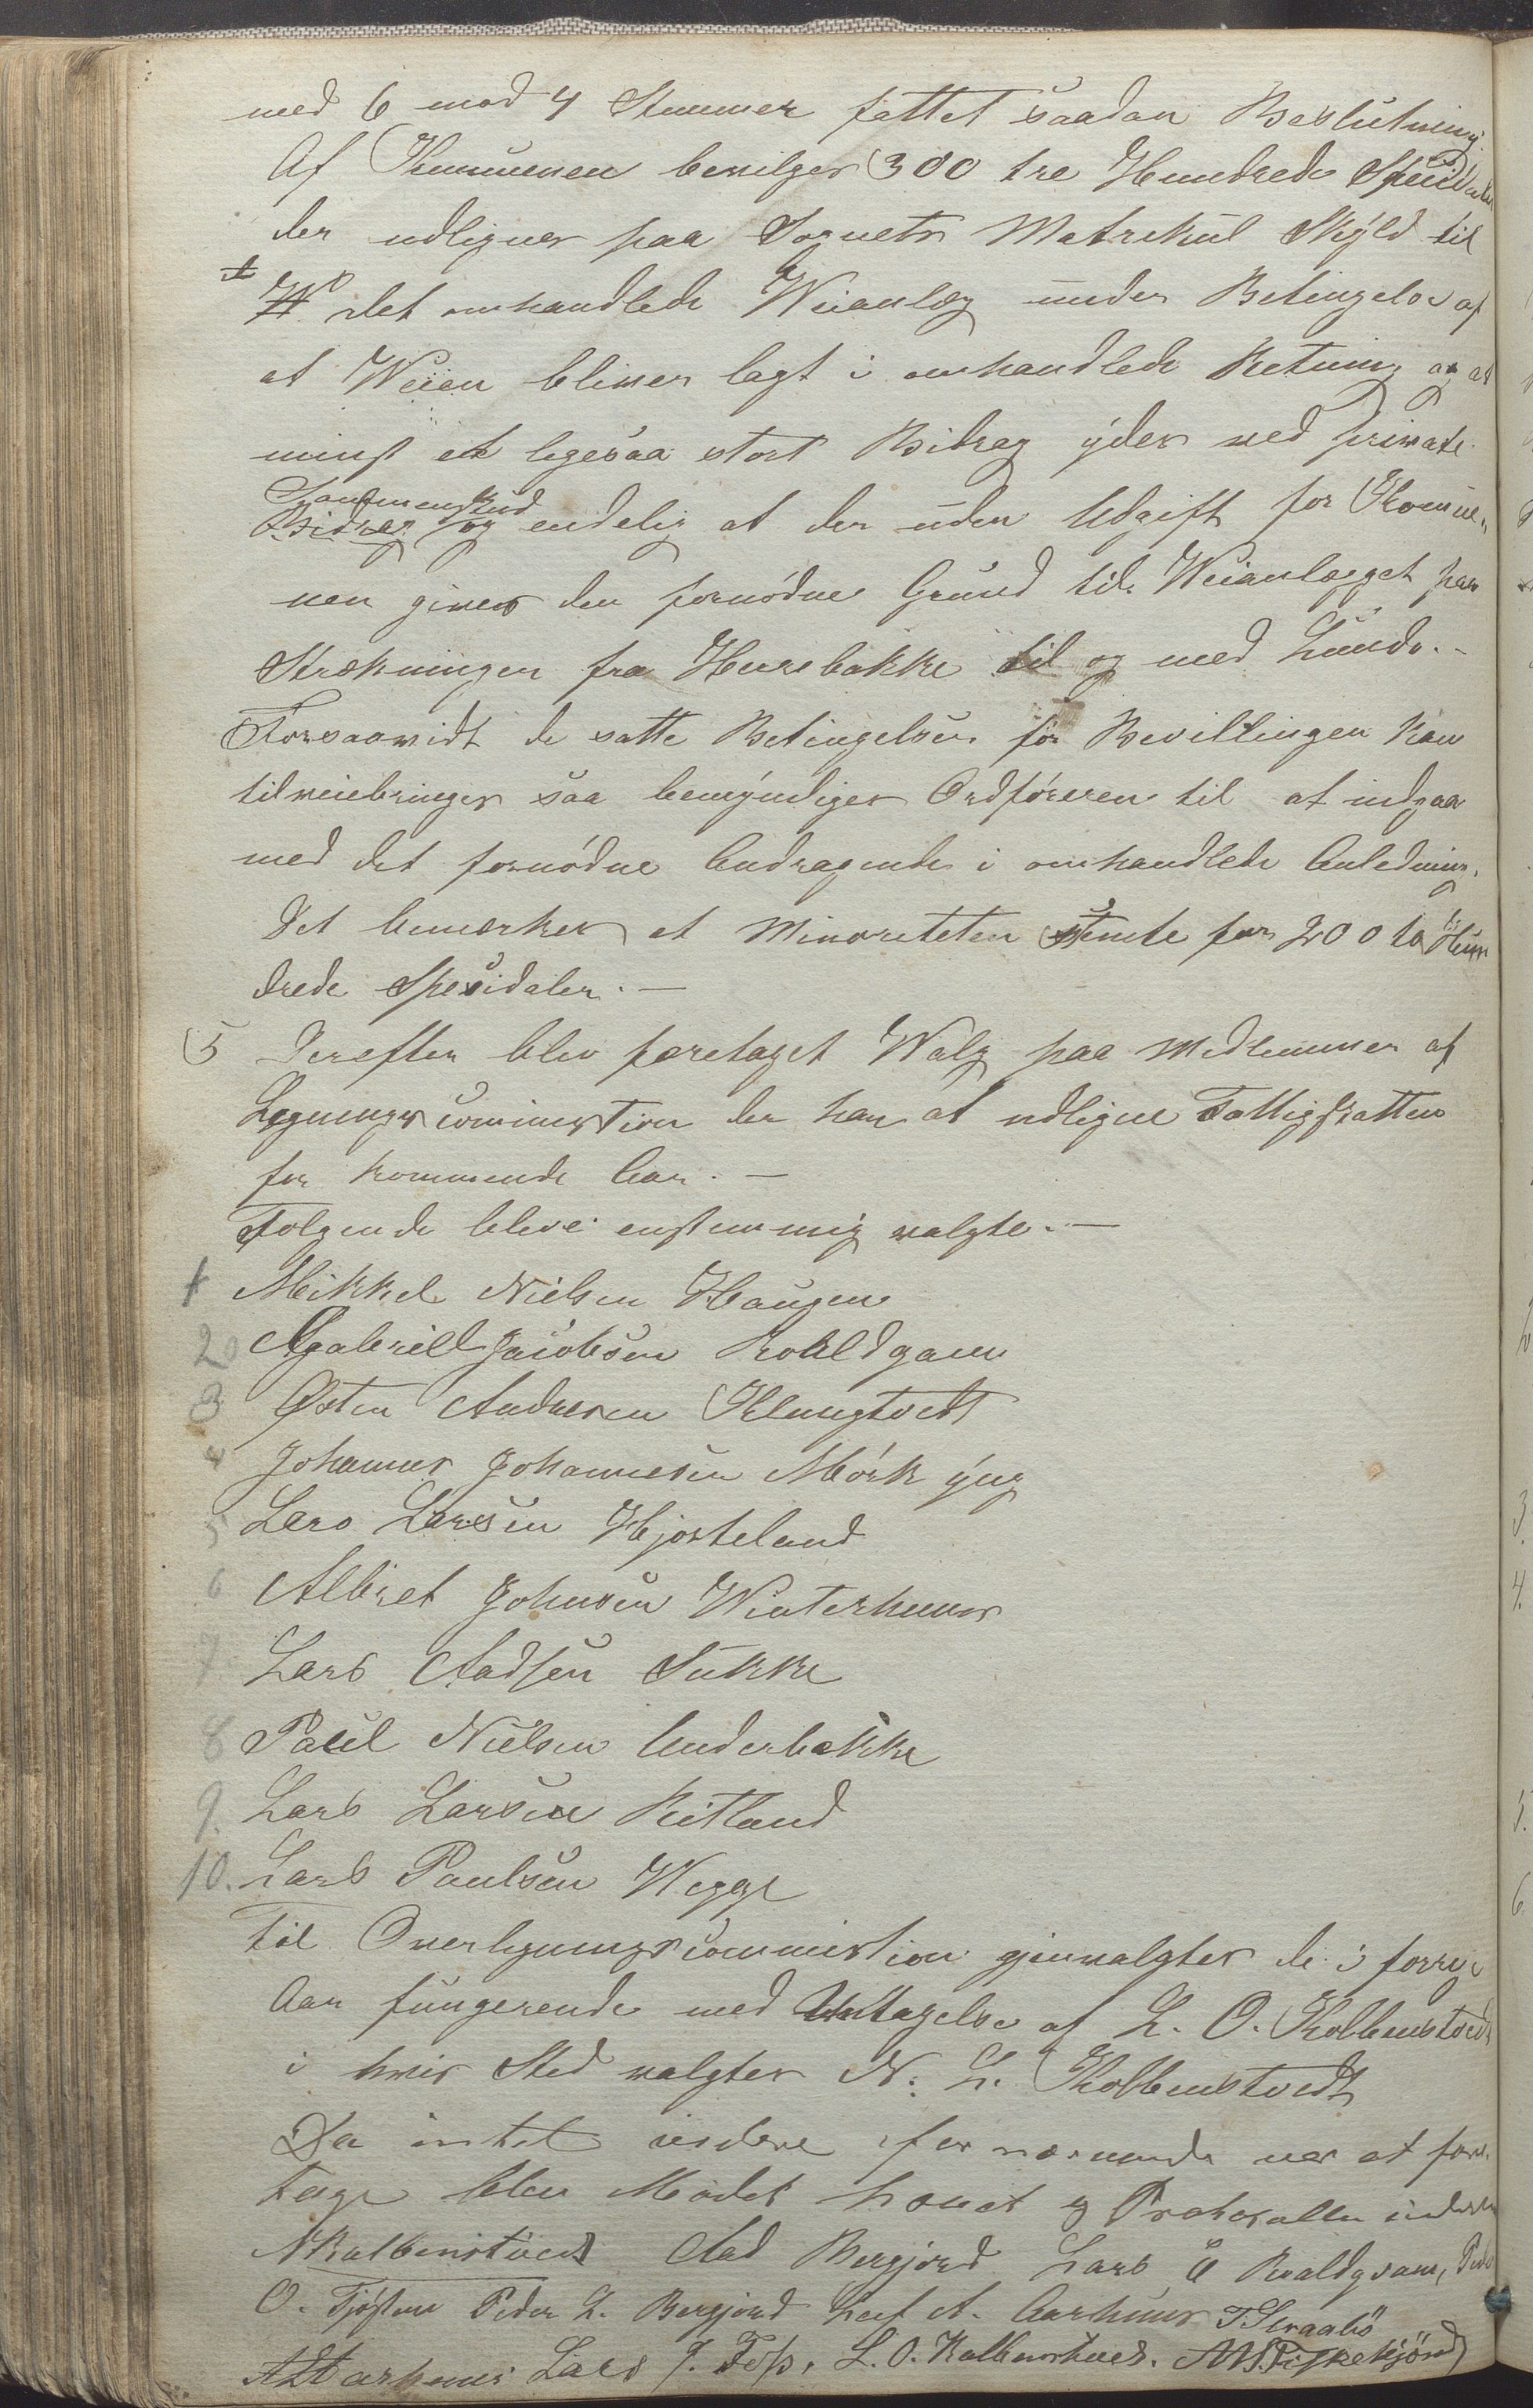 med 6 mod 4 Stemmer fattet saadan Beslutning.
Af Kommunen bevilges 300 tre Hundrede Speidaler
der udlignes paa Sognets Matrikul Skyld til
det omhandlede Weianlæg under Betingelse af
at Weien bliver lagt i omhandlede Retning og at
minst et ligesaa stort Bidrag ydes ved private
Sammenskud
Bidrag og endelig at der uden Udgift for Komu-
nen gives den fornødne Grund til Weianlægget paa
Strækningen fra Herrebakke til og med Lunde.-
Forsaavidt de satte Betingelser for Bevillingen kan
tilveiebringes saa bemyndiges Ordføreren til at indgaa
med det fornødne Andragende i omhandlede Anledning.
Det bemærkes at Minoriteten stemte for 200 to Hun
drede Spesidaler.-
5 Derefter blev foretaget Walg paa Medlemmer af
Ligningscommistion der har at udligne Fattigskatten
for kommende Aar.-
Følgende bleve enstemmig valgte.-
1 Mikkel Nielsen Haugen
2 Gabriell Jacobsen Roaldqvam
3 Østen Andersen Klungtvedt
4 Johannes Johannesen Mørk yng
5 Lars Larsen Hjorteland
6 Albret Johnsen Winterhuus
7 Lars Aadsen Sukke
8 Paul Nielsen Underbakke
9. Lars Larsen Ritland
10. Lars Paulsen Wegge
Til Overligningscommistion gjenvalgtes de i forrige
Aar fungerende med Undtagelse af L. O. Kolbenstvedt
i hvis Sted valgtes N. L. Kolbenstvedt
Da intet videre for nærværende var at fore-
tage blev Mødet hævet og Protocollen
N Kolbenstvedt Aad Bergjord Lars Roaldqvam, Peder
O. Tjøsten Peder L. Bergjord Leif A. Aarhuus T. Straabø
Aarhuus Lars J. Foss, L. O. Kolbenstvedt. Fisketjönd